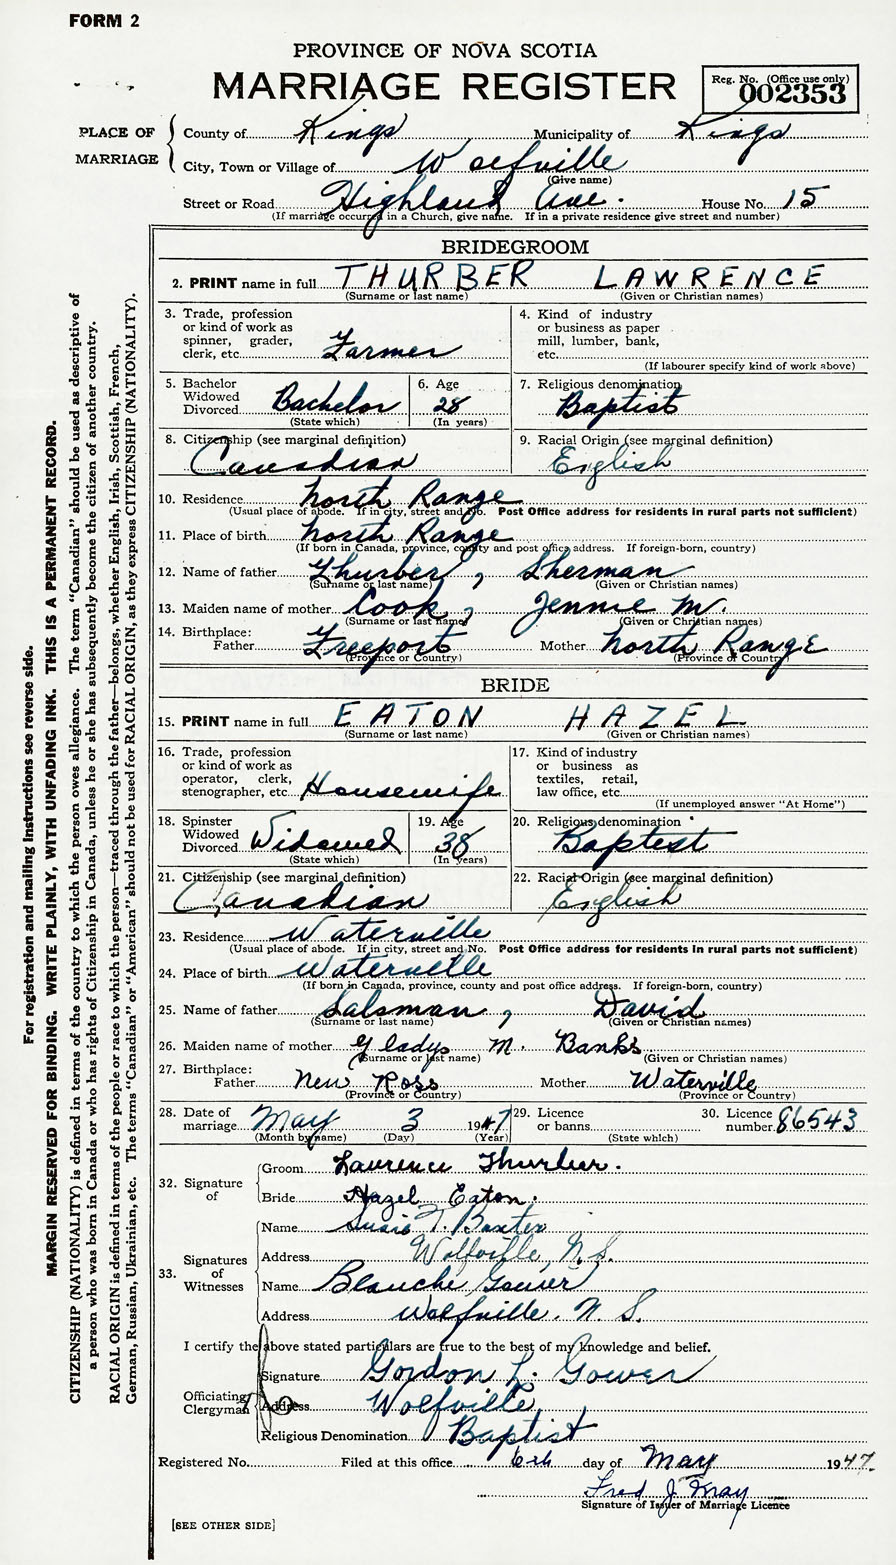 FORM 2
PROVINCE OF NOVA SCOTIA
MARRIAGE REGISTER
Reg. No. (Office use only)
002353
PLACE OF MARRIAGE
County of Kings Municipality of Kings
City, Town or Village of Wolfville
(Give name)
Street or Road Highland Ave. House No. 15
(If marriage occurred in a Church, give name. If in a private residence give street and number)
BRIDEGROOM
2. PRINT name in full THURBER LAWRENCE
(Surname or last name) (Given or Christian names)
3. Trade, profession or kind of work as spinner, grader, clerk, etc. Farmer
4. Kind of industry or business as paper mill, lumber, bank, etc.
(If labourer specify kind of work above)
5. Bachelor Widowed Divorced Bachelor
(State which)
6. Age 28
(In years)
7. Religious denomination Baptist
8. Citizenship (see marginal definition) Canadian
9. Racial Origin (see marginal definition) English
10. Residence North Range
(Usual place of abode. If in city, street and No. Post Office address for residents in rural parts not sufficient)
11. Place of birth North Range
(If born in Canada, province, county and post office address. If foreign-born, country)
12. Name of father Thurber, Sherman
(Surname or last name) (Given or Christian names)
13. Maiden name of mother Cook, Jennie M.
(Surname or last name) (Given or Christian names)
14. Birthplace: Father Freeport Mother North Range
(Province or Country) (Province or Country)
BRIDE
15. PRINT name in full EATON HAZEL
(Surname or last name) (Given or Christian names)
16. Trade, profession or kind of work as operator, clerk, stenographer, etc. Housewife
17. Kind of industry or business as textiles, retail, law office, etc.
(If unemployed answer "At Home")
18. Spinster Widowed Divorced Widowed
(State which)
19. Age 38
(In years)
20. Religious denomination Baptist
21. Citizenship (see marginal definition) Canadian
22. Racial Origin (see marginal definition) English
23. Residence Waterville
(Usual place of abode. If in city, street and No. Post Office address for residents in rural parts not sufficient)
24. Place of birth Waterville
(If born in Canada, province, county and post office address. If foreign-born, country)
25. Name of father Salsman, David
(Surname or last name) (Given or Christian names)
26. Maiden name of mother Gladys M. Banks
(Surname or last name) (Given or Christian names)
27. Birthplace: Father New Ross Mother Waterville
(Province or Country) (Province or Country)
28. Date of marriage May 3 1947
(Month by name) (Day) (Year)
29. Licence or banns
(State which)
30. Licence number 86543
32. Signature of
Groom Lawrence Thurber.
Bride Hazel Eaton.
33. Signatures of Witnesses
Name Susie T. Baxter
Address Wolfville, N.S.
Name Blanche Gower
Address Wolfville. N.S.
I certify the above stated particulars are true to the best of my knowledge and belief.
Officiating Clergyman
Signature Gordon L. Gower
Address Wolfville
Religious Denomination Baptist
Registered No. Filed at this office 6th day of May 1947.
Fred J. May
Signature of Issuer of Marriage Licence
[SEE OTHER SIDE]
For registration and mailing instructions see reverse side.
MARGIN RESERVED FOR BINDING. WRITE PLAINLY, WITH UNFADING INK. THIS IS A PERMANENT RECORD.
CITIZENSHIP (NATIONALITY) is defined in terms of the country to which the person owes allegiance. The term "Canadian" should be used as descriptive of
a person who was born in Canada or who has rights of Citizenship in Canada, unless he or she has subsequently become the citizen of another country.
RACIAL ORIGIN is defined in terms of the people or race to which the person—traced through the father—belongs, whether English, Irish, Scottish, French,
German, Russian, Ukrainian, etc. The terms "Canadian" or "American" should not be used for RACIAL ORIGIN, as they express CITIZENSHIP (NATIONALITY).